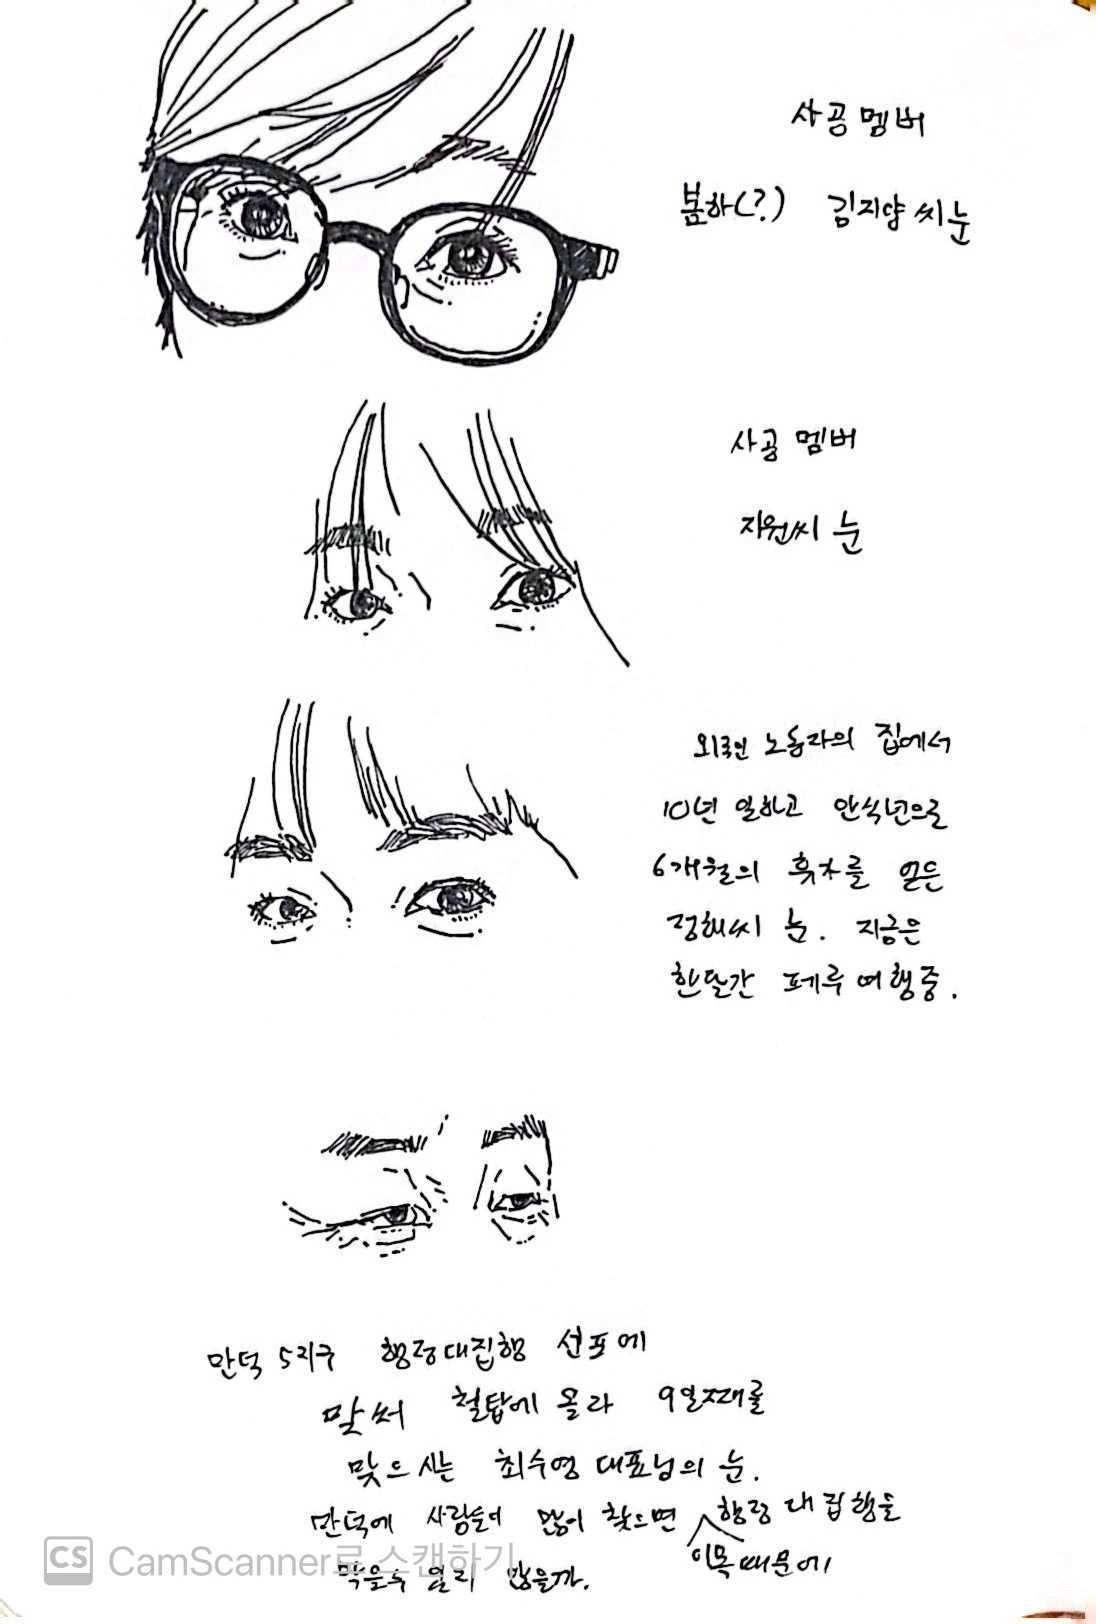 사공 멤버
봄하(?) 김지양 씨 눈
사공 멤버
지원씨 눈
외국인 노동자의 집에서
10년 일하고 안식년으로
6개월의 휴가를 얻은
정해씨 눈. 지금은
한달간 페루 여행중.
만덕 5지구 행정대집행 선포에
맞써 철탑에 올라 9일째를
맞으시는 최수영 대표님의 눈.
만덕에 사람들이 많이 찾으면 이목 때문에 행정대집행을
막을 수 있지 않을까.
CS CamScanner로 스캔하기